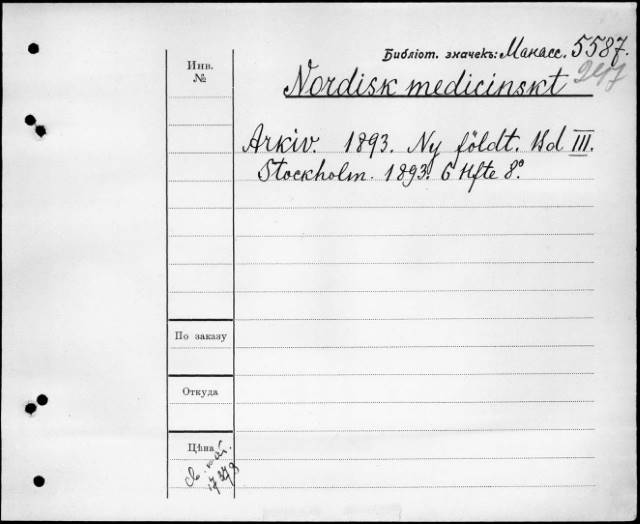 Библіот. значекъ: Манасс. 5587.
247
Инв.
№
Nordisk medicinskt
Arkiv. 1893. Ny földt. Bd III.
Stockholm. 1893. 6 Hfte 8°.
По заказу
Откуда
Цѣна